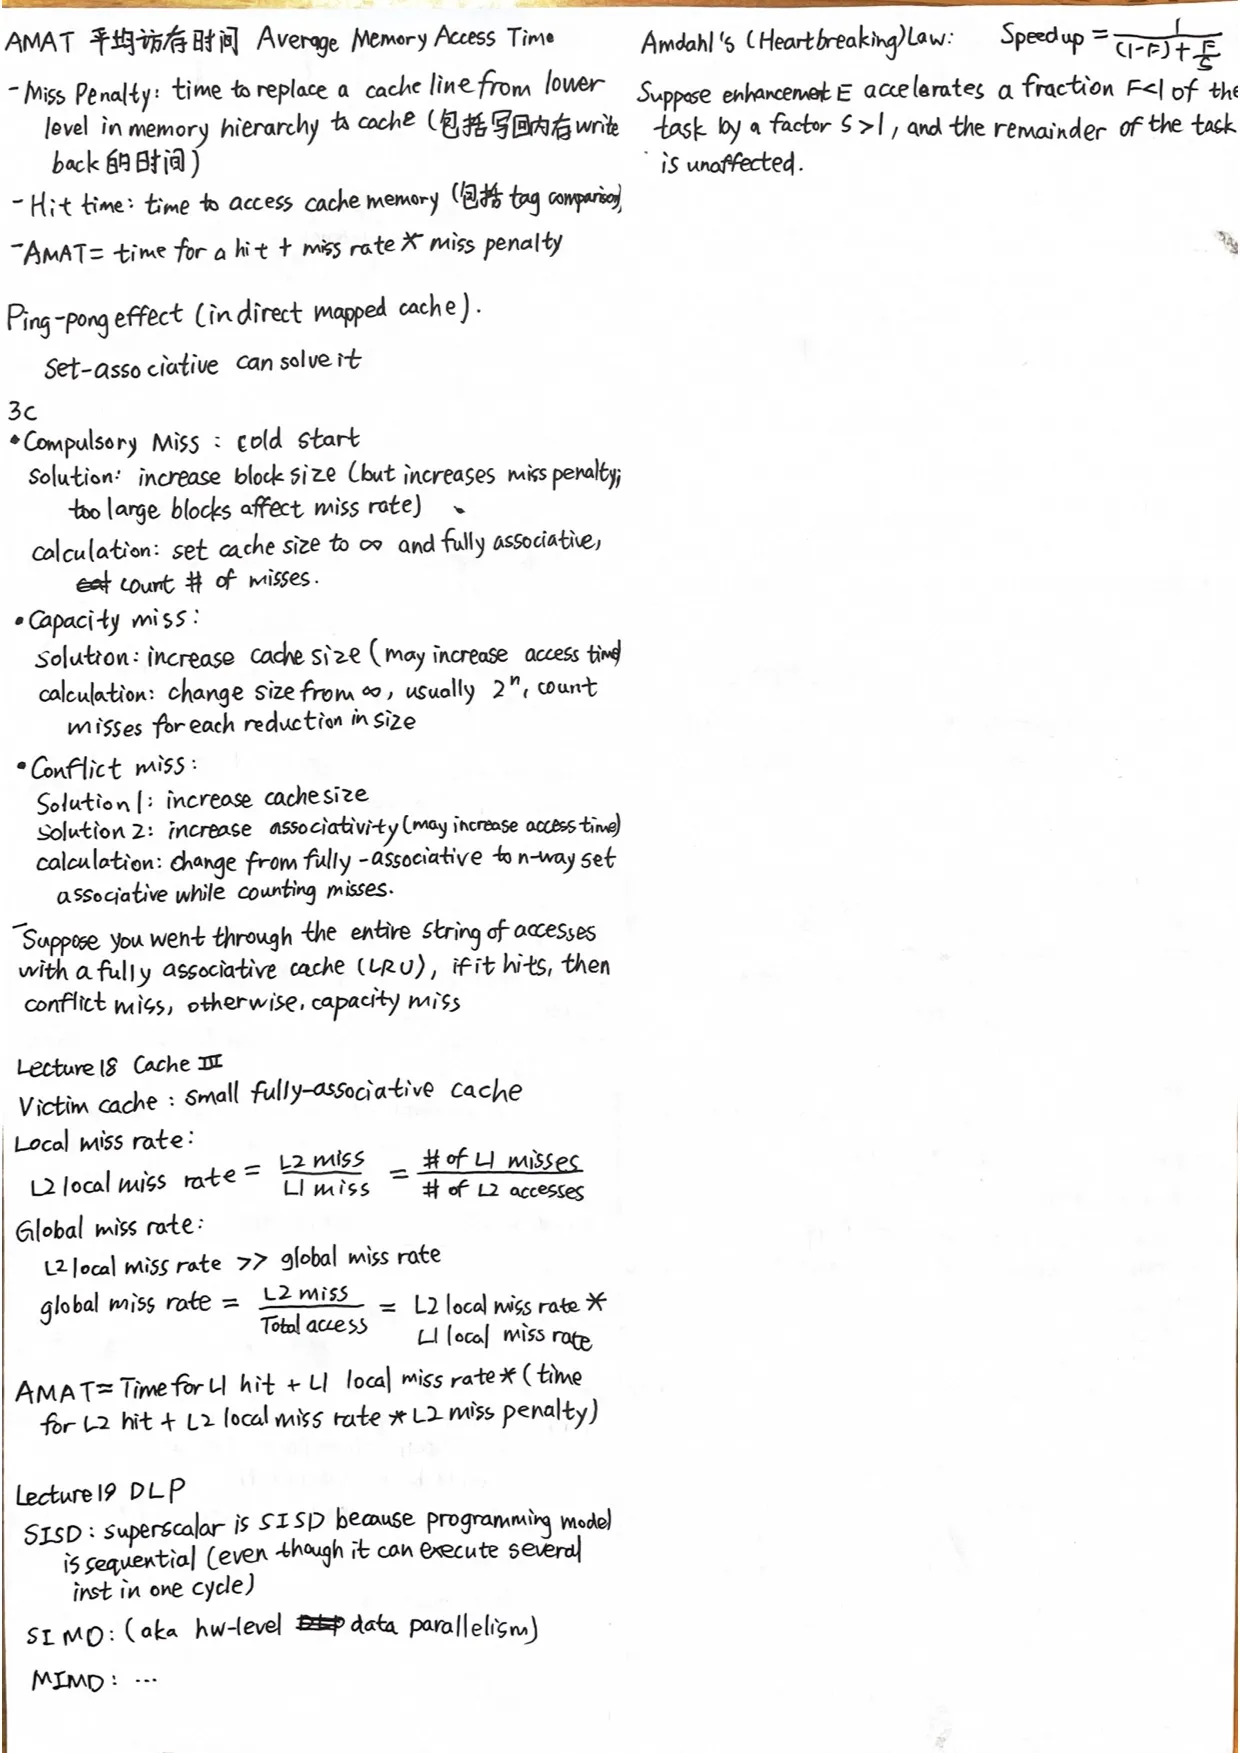 AMAT 平均访存时间 Average Memory Access Time
- Miss Penalty: time to replace a cache line from lower
level in memory hierarchy to cache (包括写回内存write
back的时间)
- Hit time: time to access cache memory (包括 tag comparison)
- AMAT = time for a hit + miss rate * miss penalty
Ping-pong effect (in direct mapped cache).
Set-associative can solve it
3C
• Compulsory Miss : cold start
Solution: increase block size (but increases miss penalty;
too large blocks affect miss rate)
calculation: set cache size to ∞ and fully associative,
count # of misses.
• Capacity miss:
Solution: increase cache size (may increase access time)
calculation: change size from ∞, usually 2ⁿ, count
misses for each reduction in size
• Conflict miss:
Solution 1: increase cache size
Solution 2: increase associativity (may increase access time)
calculation: change from fully-associative to n-way set
associative while counting misses.
- Suppose you went through the entire string of accesses
with a fully associative cache (LRU), if it hits, then
conflict miss, otherwise, capacity miss
Lecture 18 Cache III
Victim cache : Small fully-associative cache
Local miss rate:
L2 local miss rate = L2 miss / L1 miss = # of L1 misses / # of L2 accesses
Global miss rate:
L2 local miss rate >> global miss rate
global miss rate = L2 miss / Total access = L2 local miss rate *
L1 local miss rate
AMAT = Time for L1 hit + L1 local miss rate * (time
for L2 hit + L2 local miss rate * L2 miss penalty)
Lecture 19 DLP
SISD: superscalar is SISD because programming model
is sequential (even though it can execute several
inst in one cycle)
SIMD: (aka hw-level data parallelism)
MIMD: ...
Amdahl's (Heartbreaking) Law: Speedup = 1 / ((1-F) + F/S)
Suppose enhancement E accelerates a fraction F<1 of the
task by a factor S>1, and the remainder of the task
is unaffected.